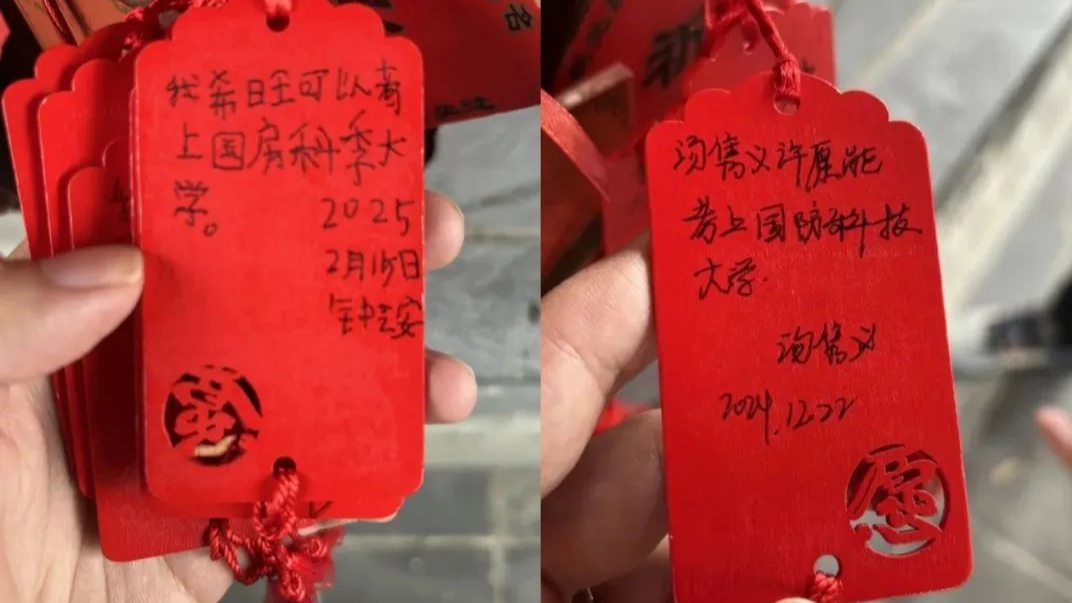 我希旺可以考
上国房科季大
学。
2025
2月15日
愿
名
汤隽义许愿能
考上国防科技
大学.
汤隽义
2024.12.22
愿